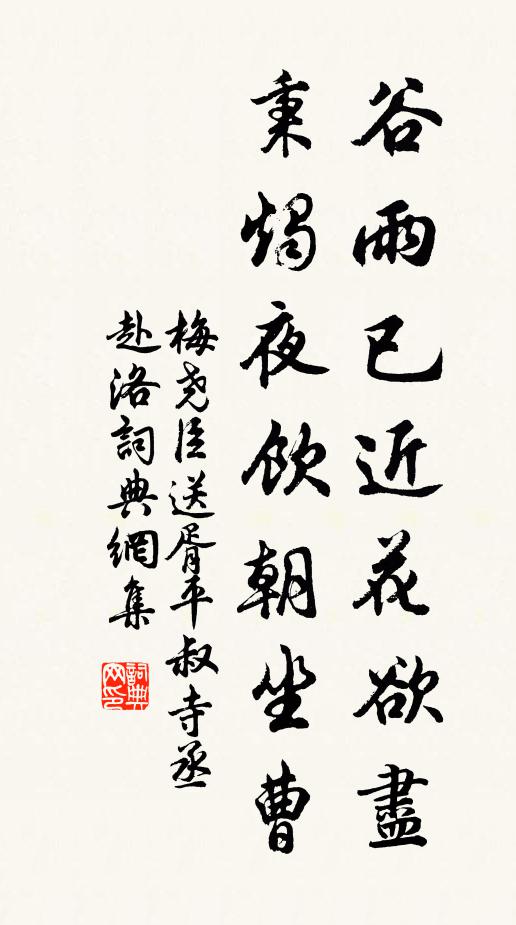 谷雨已近花欲盡
秉燭夜飲朝坐曹
梅尧臣送胥平叔寺丞
赴洛詞典網集
詞典網印